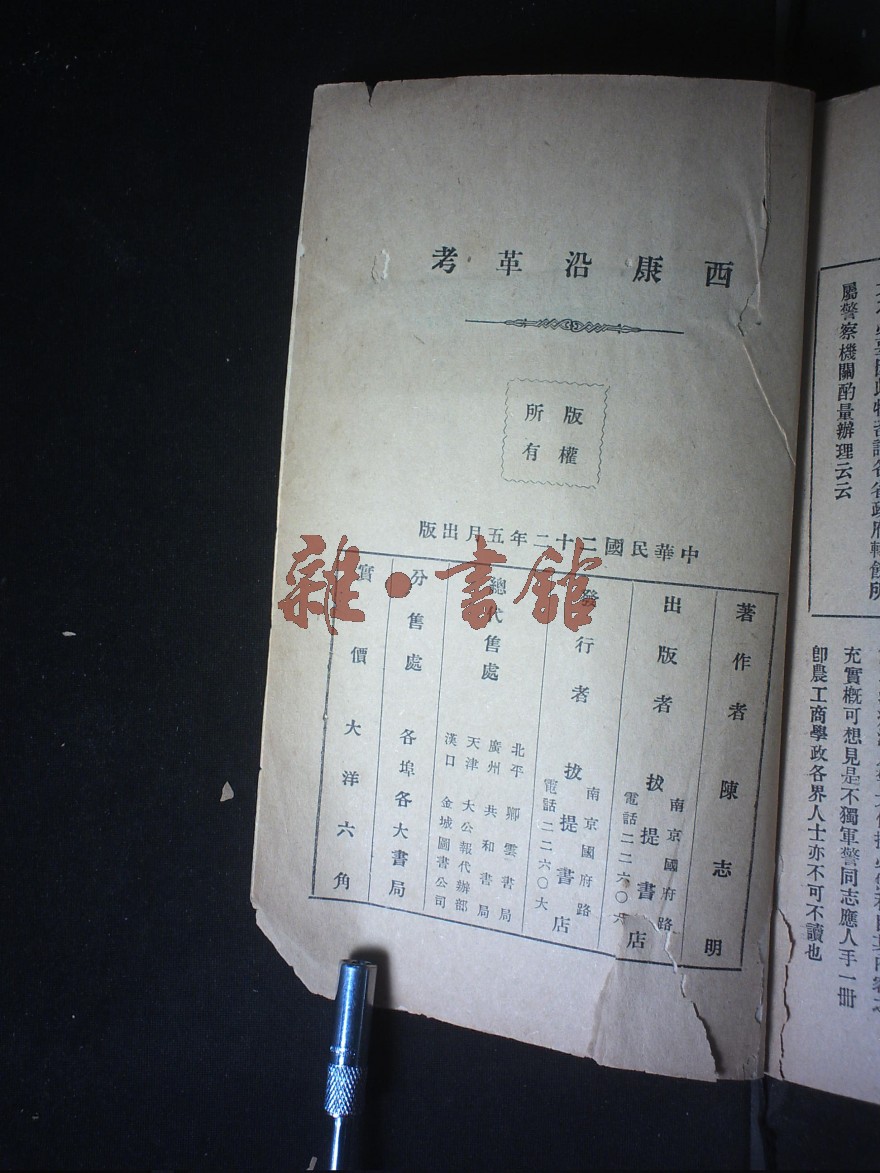 西康沿革考
版權
所有
中華民國二十二年五月出版
著作者 陳志明
出版者 拔提書店
南京國府路
電話二二六〇六
發行者 拔提書店
南京國府路
電話二二六〇大
總代售處
北平 卿雲書局
廣州 共和書局
天津 大公報代辦部
漢口 金城圖書公司
分售處 各埠各大書局
實價大洋六角
雜·書館
屬警察機關酌量辦理云云
充實概可想見是不獨軍警同志應人手一冊
卽農工商學政各界人士亦不可不讀也